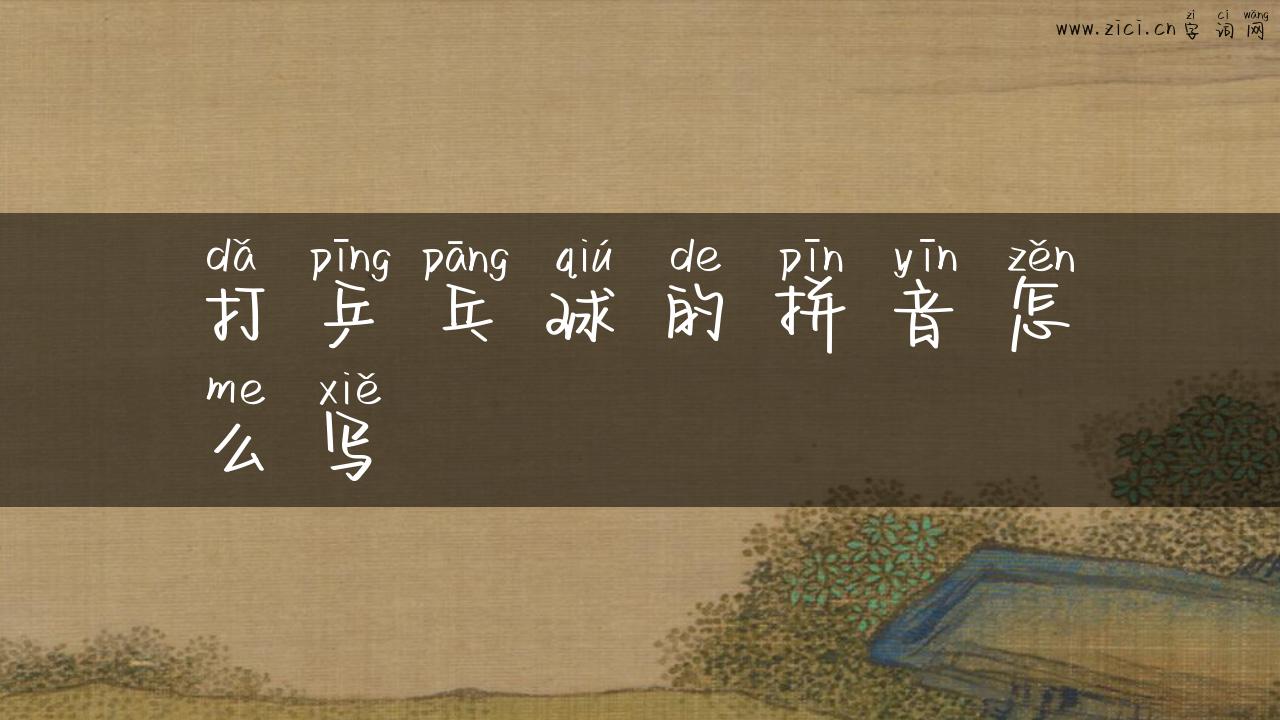 zì cí wǎng
www.zici.cn 字词网
dǎ pīng pāng qiú de pīn yīn zěn
打乒乓球的拼音怎
me xiě
么写